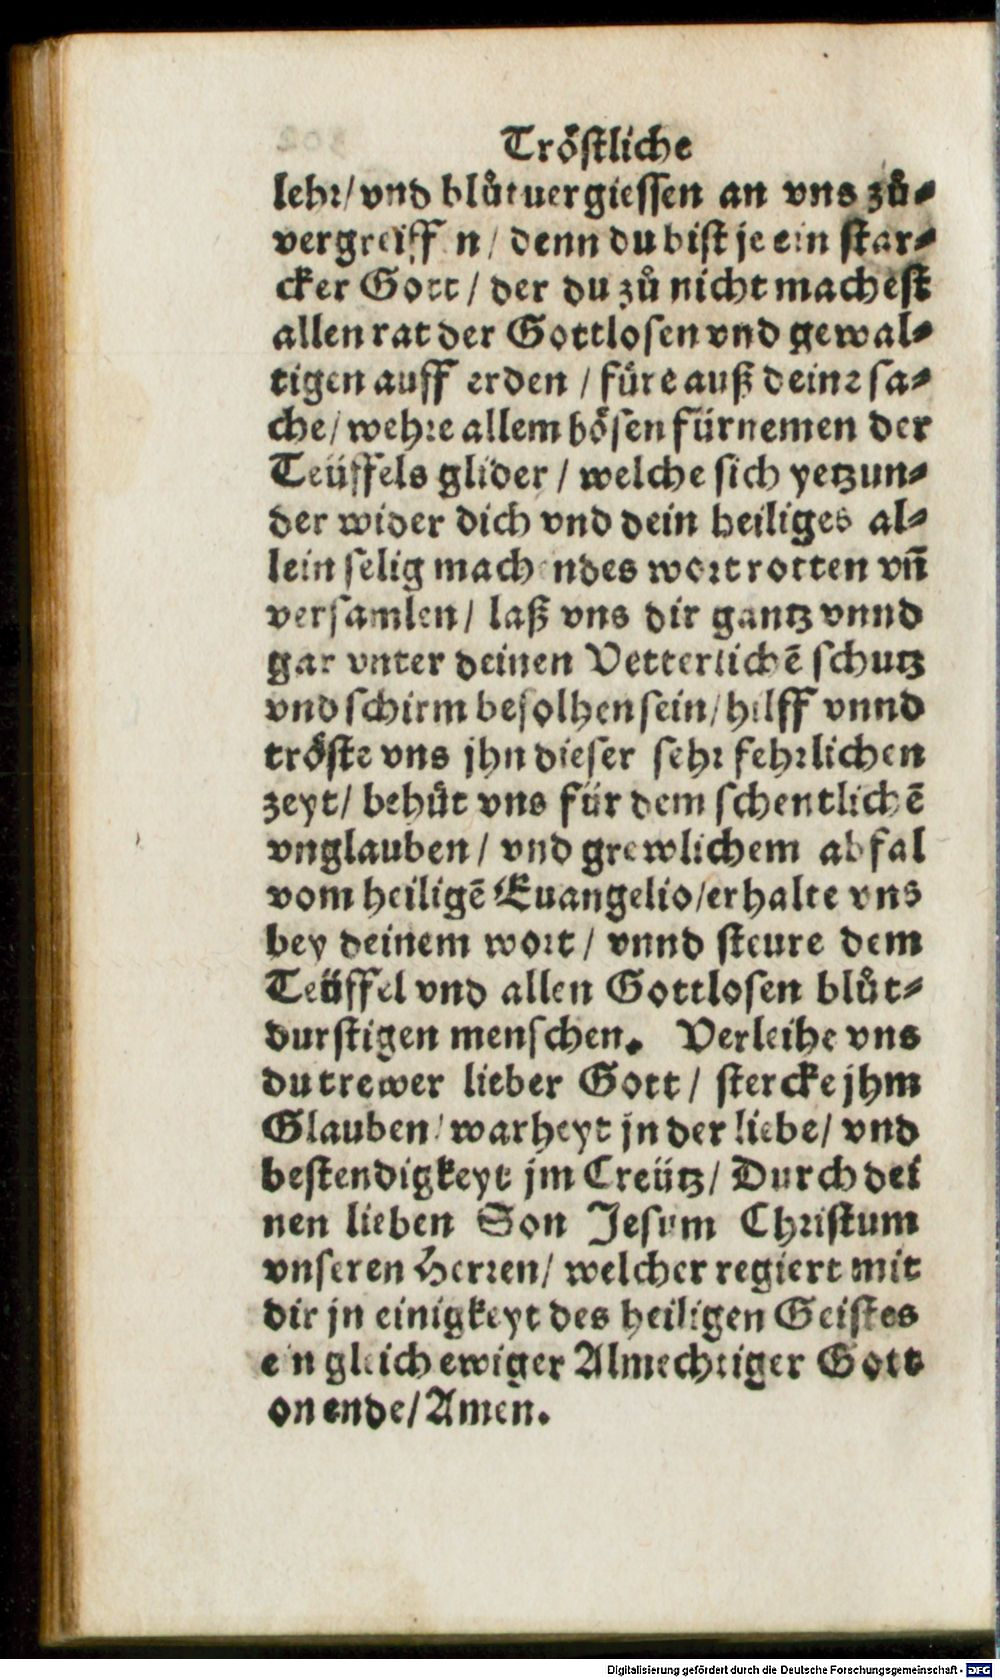 Tröstliche
lehr/ vnd blůtuergiessen an vns zů⸗
vergreiff n/ denn du bist je ein star⸗
cker Gott / der du zů nicht machest
allen rat der Gottlosen vnd gewal⸗
tigen auff erden / füre auß deine sa⸗
che/ wehre allem bösen fürnemen der
Teüffels glider / welche sich yetzun⸗
der wider dich vnd dein heiliges al⸗
lein selig mach ndes wort rotten vn̄
versamlen/ laß vns dir gantz vnnd
gar vnter deinen Vetterlichē schutz
vnd schirm befolhen sein/ hilff vnnd
tröste vns jhn dieser sehr fehrlichen
zeyt/ behüt vns für dem schentlichē
vnglauben/ vnd grewlichem abfal
vom heiligē Euangelio/ erhalte vns
bey deinem wort/ vnnd steure dem
Teüffel vnd allen Gottlosen blůt⸗
durstigen menschen. Verleihe vns
du trewer lieber Gott/ stercke jhm
Glauben/ warheyt jn der liebe/ vnd
bestendigkeyt jm Creütz/ Durch dei
nen lieben Son Jesum Christum
vnseren Herren/ welcher regiert mit
dir jn einigkeyt des heiligen Geistes
e n gleich ewiger Almechtiger Gott
on ende/ Amen.
Digitalisierung gefördert durch die Deutsche Forschungsgemeinschaft - DFG